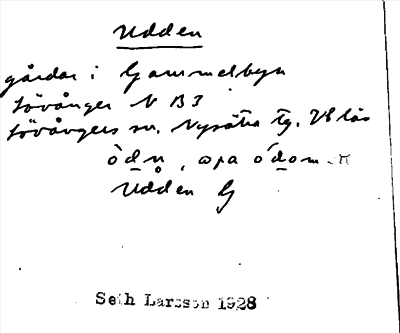 Udden
gårdar i Gammelbyn
Lövånger N B3
Lövångers sn. Nysätra tg. Vb län
òdn̥, ɷpa ódom
Udden G
Seth Larsson 1928